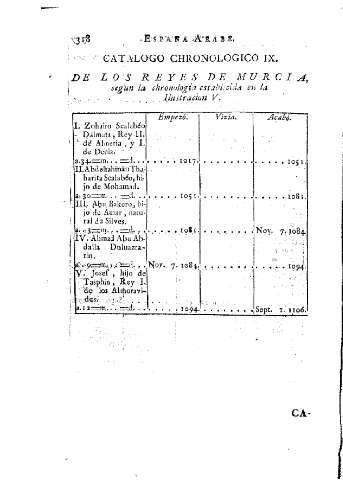 318 ESPAÑA ARABE.
CATALOGO CHRONOLOGICO IX.
DE LOS REYES DE MURCIA,
segun la chronologia establecida en la
Ilustracion V.
Empezó. Vivia. Acabó.
I. Zohairo Scalabéo
Dalmata, Rey II.
de Almeria, y I.
de Denia.
a.34=m...=d. 1017. 1051.
II. Abdelrahman Tha-
harita Scalabéo, hi-
jo de Mohamad.
a.30=m...=d. 1051. 1081.
III. Abu Bakero, hi-
jo de Amar, natu-
ral de Silves.
a. 3=m...=d. 1081. Nov. 7. 1084.
IV. Ahmad Abu Ab-
dalla Duluazra-
tin.
a. 9=m...=d. Nov. 7. 1084. 1094.
V. Josef, hijo de
Tasphin, Rey I.
de los Almoravi-
des.
a.12=m...=d. 1094. Sept. 1. 1106.
CA-